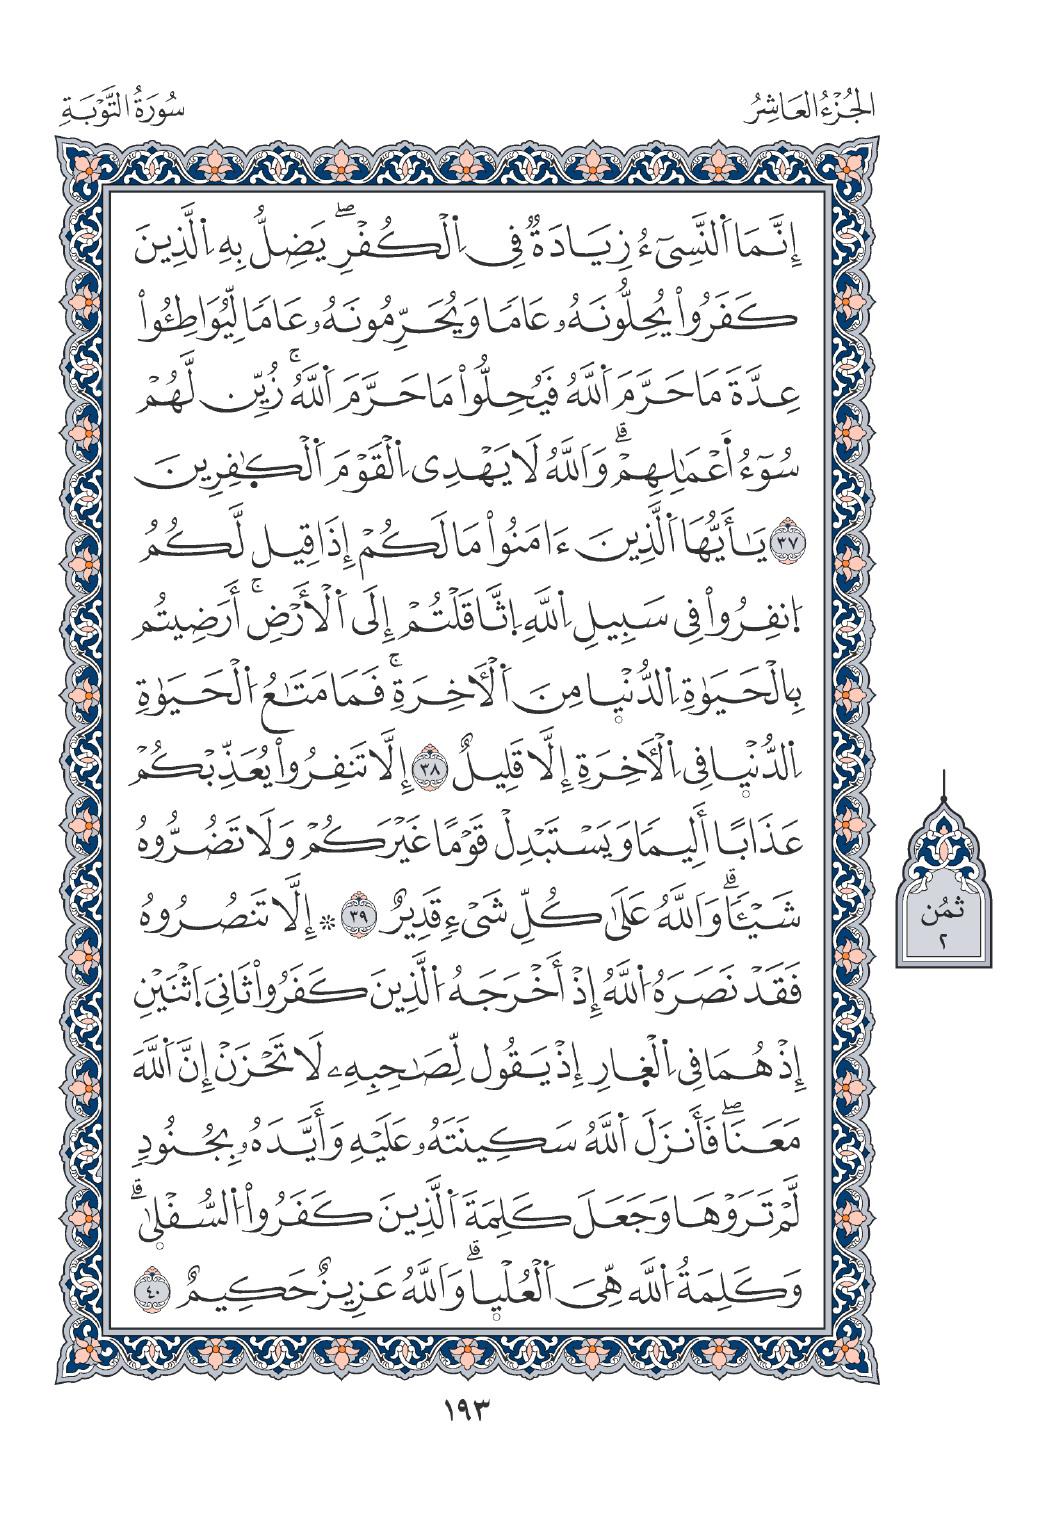 الجُزْءُ العَاشِرُ
سُورَةُ التَّوْبَةِ
إِنَّمَا اَ۬لنَّسِيٓءُ زِيَادَةٞ فِي اِ۬لْكُفْرِۖ يَضِلُّ بِهِ اِ۬لَّذِينَ
كَفَرُواْ يُحِلُّونَهُۥ عَامٗا وَيُحَرِّمُونَهُۥ عَامٗا لِّيُوَاطِـُٔواْ
عِدَّةَ مَا حَرَّمَ اَ۬للَّهُ فَيُحِلُّواْ مَا حَرَّمَ اَ۬للَّهُۚ زُيِّن لَّهُمْ
سُوٓءُ أَعْمَٰلِهِمْۗ وَاَللَّهُ لَا يَهْدِي اِ۬لْقَوْمَ اَ۬لْكٰ۪فِرِينَ
٣٧ يَٰٓأَيُّهَا اَ۬لَّذِينَ ءَامَنُواْ مَا لَكُمْ إِذَا قِيل لَّكُمُ
اُ۪نفِرُواْ فِي سَبِيلِ اِ۬للَّهِ اِ۪ثَّاقَلْتُمْ إِلَى اَ۬لْأَرْضِۚ أَرَضِيتُم
بِالْحَيَوٰةِ اِ۬لدُّنْي۪ا مِنَ اَ۬لْأٓخِرَةِۚ فَمَا مَتَٰعُ اُ۬لْحَيَوٰةِ
اِ۬لدُّنْي۪ا فِي اِ۬لْأٓخِرَةِ إِلَّا قَلِيلٌ ٣٨ إِلَّا تَنفِرُواْ يُعَذِّبْكُمْ
عَذَابًا أَلِيمٗا وَيَسْتَبْدِلْ قَوْمًا غَيْرَكُمْ وَلَا تَضُرُّوهُ
شَيْـٔٗاۗ وَاَللَّهُ عَلَىٰ كُلِّ شَيْءٖ قَدِيرٌ ٣٩ ۞ إِلَّا تَنصُرُوهُ
فَقَدْ نَصَرَهُ اُ۬للَّهُ إِذْ أَخْرَجَهُ اُ۬لَّذِينَ كَفَرُواْ ثَانِيَ اَ۪ثْنَيْنِ
إِذْ هُمَا فِي اِ۬لْغ۪ارِ إِذْ يَقُول لِّصَٰحِبِهِۦ لَا تَحْزَنْ إِنَّ اَ۬للَّهَ
مَعَنَاۖ فَأَنزَلَ اَ۬للَّهُ سَكِينَتَهُۥ عَلَيْهِ وَأَيَّدَهُۥ بِجُنُودٖ
لَّمْ تَرَوْهَا وَجَعَلَ كَلِمَةَ اَ۬لَّذِينَ كَفَرُواْ اُ۬لسُّفْل۪ىٰۗ
وَكَلِمَةُ اُ۬للَّهِ هِّيَ اَ۬لْعُلْي۪اۗ وَاَللَّهُ عَزِيزٌ حَكِيمٌ ٤٠
ثُمُن
٢
١٩٣